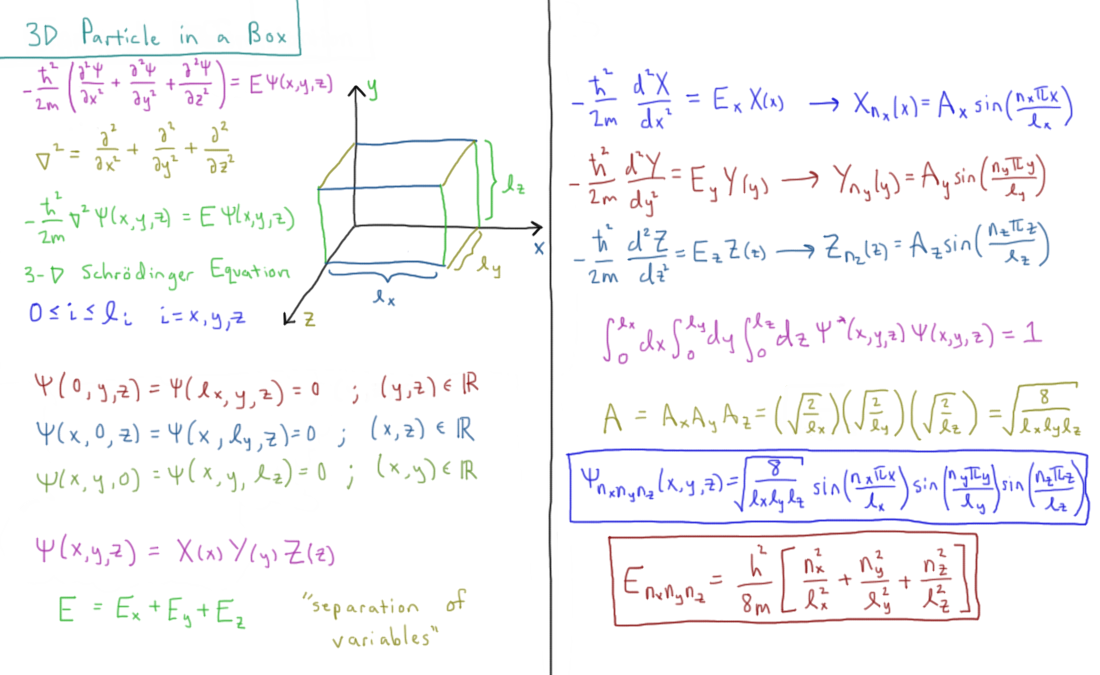 3D Particle in a Box
-ħ²/2m (∂²Ψ/∂x² + ∂²Ψ/∂y² + ∂²Ψ/∂z²) = EΨ(x,y,z)
∇² = ∂²/∂x² + ∂²/∂y² + ∂²/∂z²
-ħ²/2m ∇²Ψ(x,y,z) = EΨ(x,y,z)
3-D Schrödinger Equation
0 ≤ i ≤ lᵢ i = x,y,z
y
l_z
x
l_y
l_x
z
Ψ(0,y,z) = Ψ(l_x,y,z) = 0 ; (y,z) ∈ ℝ
Ψ(x,0,z) = Ψ(x,l_y,z) = 0 ; (x,z) ∈ ℝ
Ψ(x,y,0) = Ψ(x,y,l_z) = 0 ; (x,y) ∈ ℝ
Ψ(x,y,z) = X(x)Y(y)Z(z)
E = E_x + E_y + E_z
"separation of
variables"
-ħ²/2m d²X/dx² = E_x X(x) → X_{n_x}(x) = A_x sin(n_xπx/l_x)
-ħ²/2m d²Y/dy² = E_y Y(y) → Y_{n_y}(y) = A_y sin(n_yπy/l_y)
-ħ²/2m d²Z/dz² = E_z Z(z) → Z_{n_z}(z) = A_z sin(n_zπz/l_z)
∫₀^{l_x} dx ∫₀^{l_y} dy ∫₀^{l_z} dz Ψ*(x,y,z) Ψ(x,y,z) = 1
A = A_x A_y A_z = (√(2/l_x)) (√(2/l_y)) (√(2/l_z)) = √(8/(l_x l_y l_z))
Ψ_{n_x n_y n_z}(x,y,z) = √(8/(l_x l_y l_z)) sin(n_xπx/l_x) sin(n_yπy/l_y) sin(n_zπz/l_z)
E_{n_x n_y n_z} = h²/8m [n_x²/l_x² + n_y²/l_y² + n_z²/l_z²]